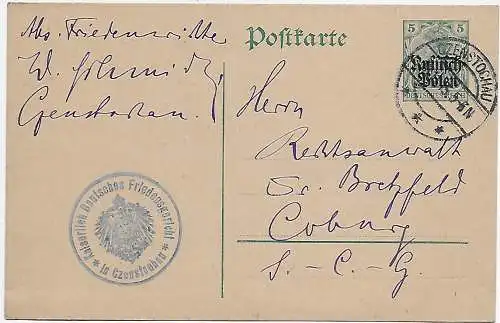 Postkarte
Abs. Friedenrichter
W. Schmidt
Czenstochau
5 5
Russisch-
Polen
DEUTSCHES REICH
CZENSTOCHAU
Herrn
Rechtsanwalt
Dr. Bretzfeld
Coburg
S.-C.-G.
Kaiserlich Deutsches Friedensgericht
* in Czenstochau *